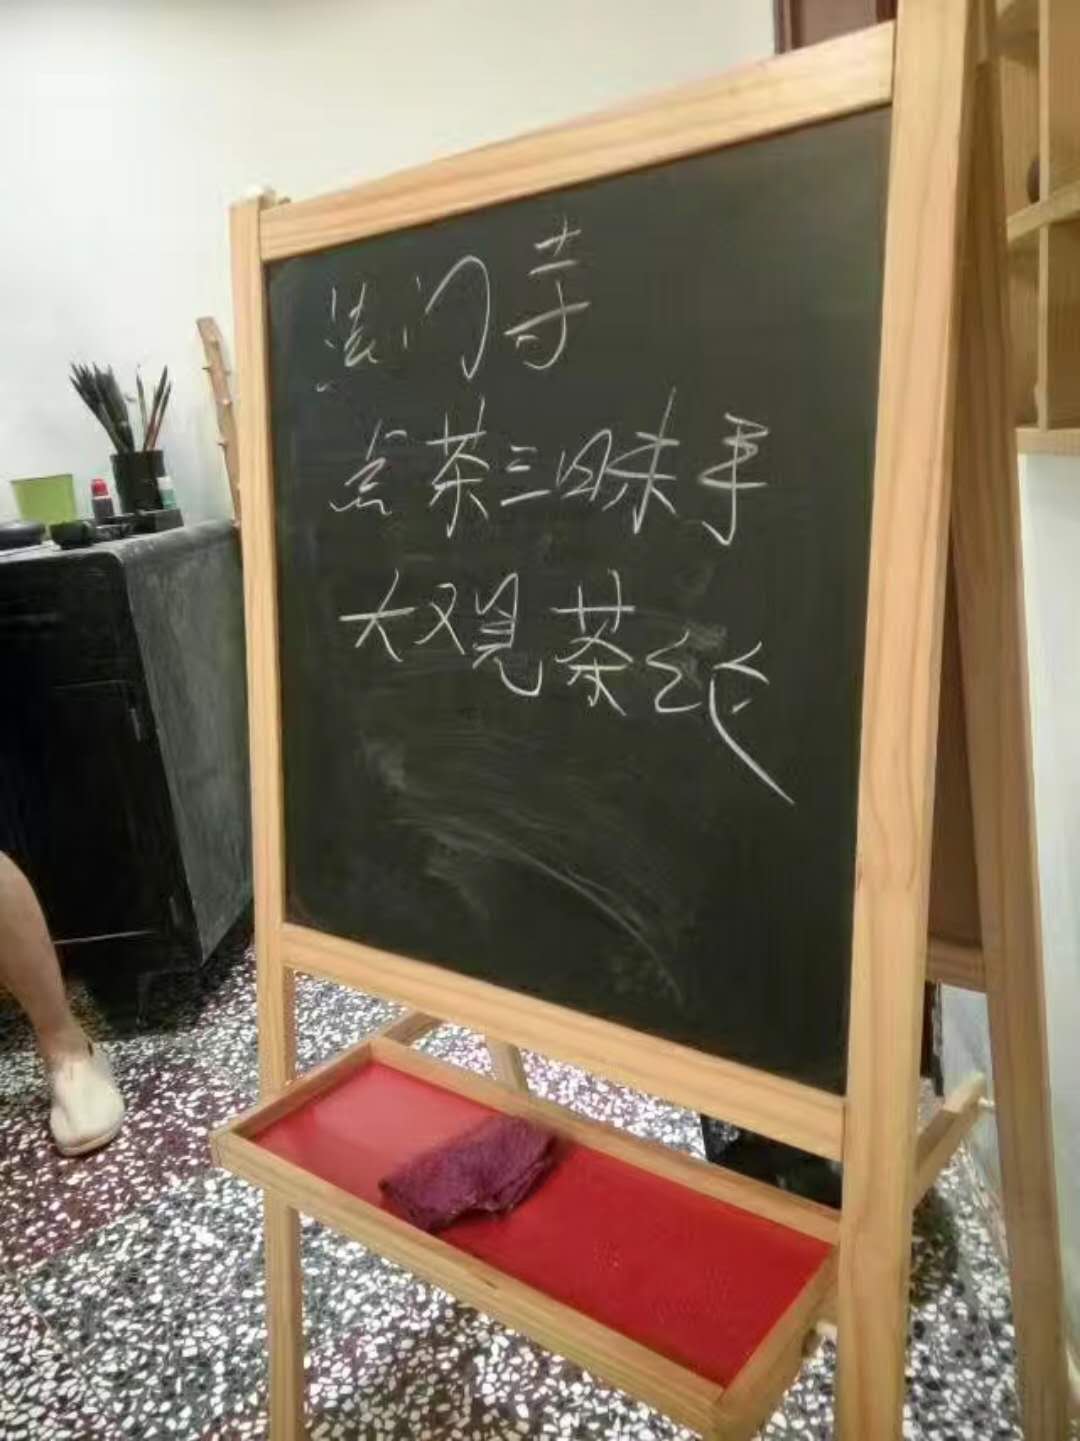 法门寺
点茶三昧手
大观茶论